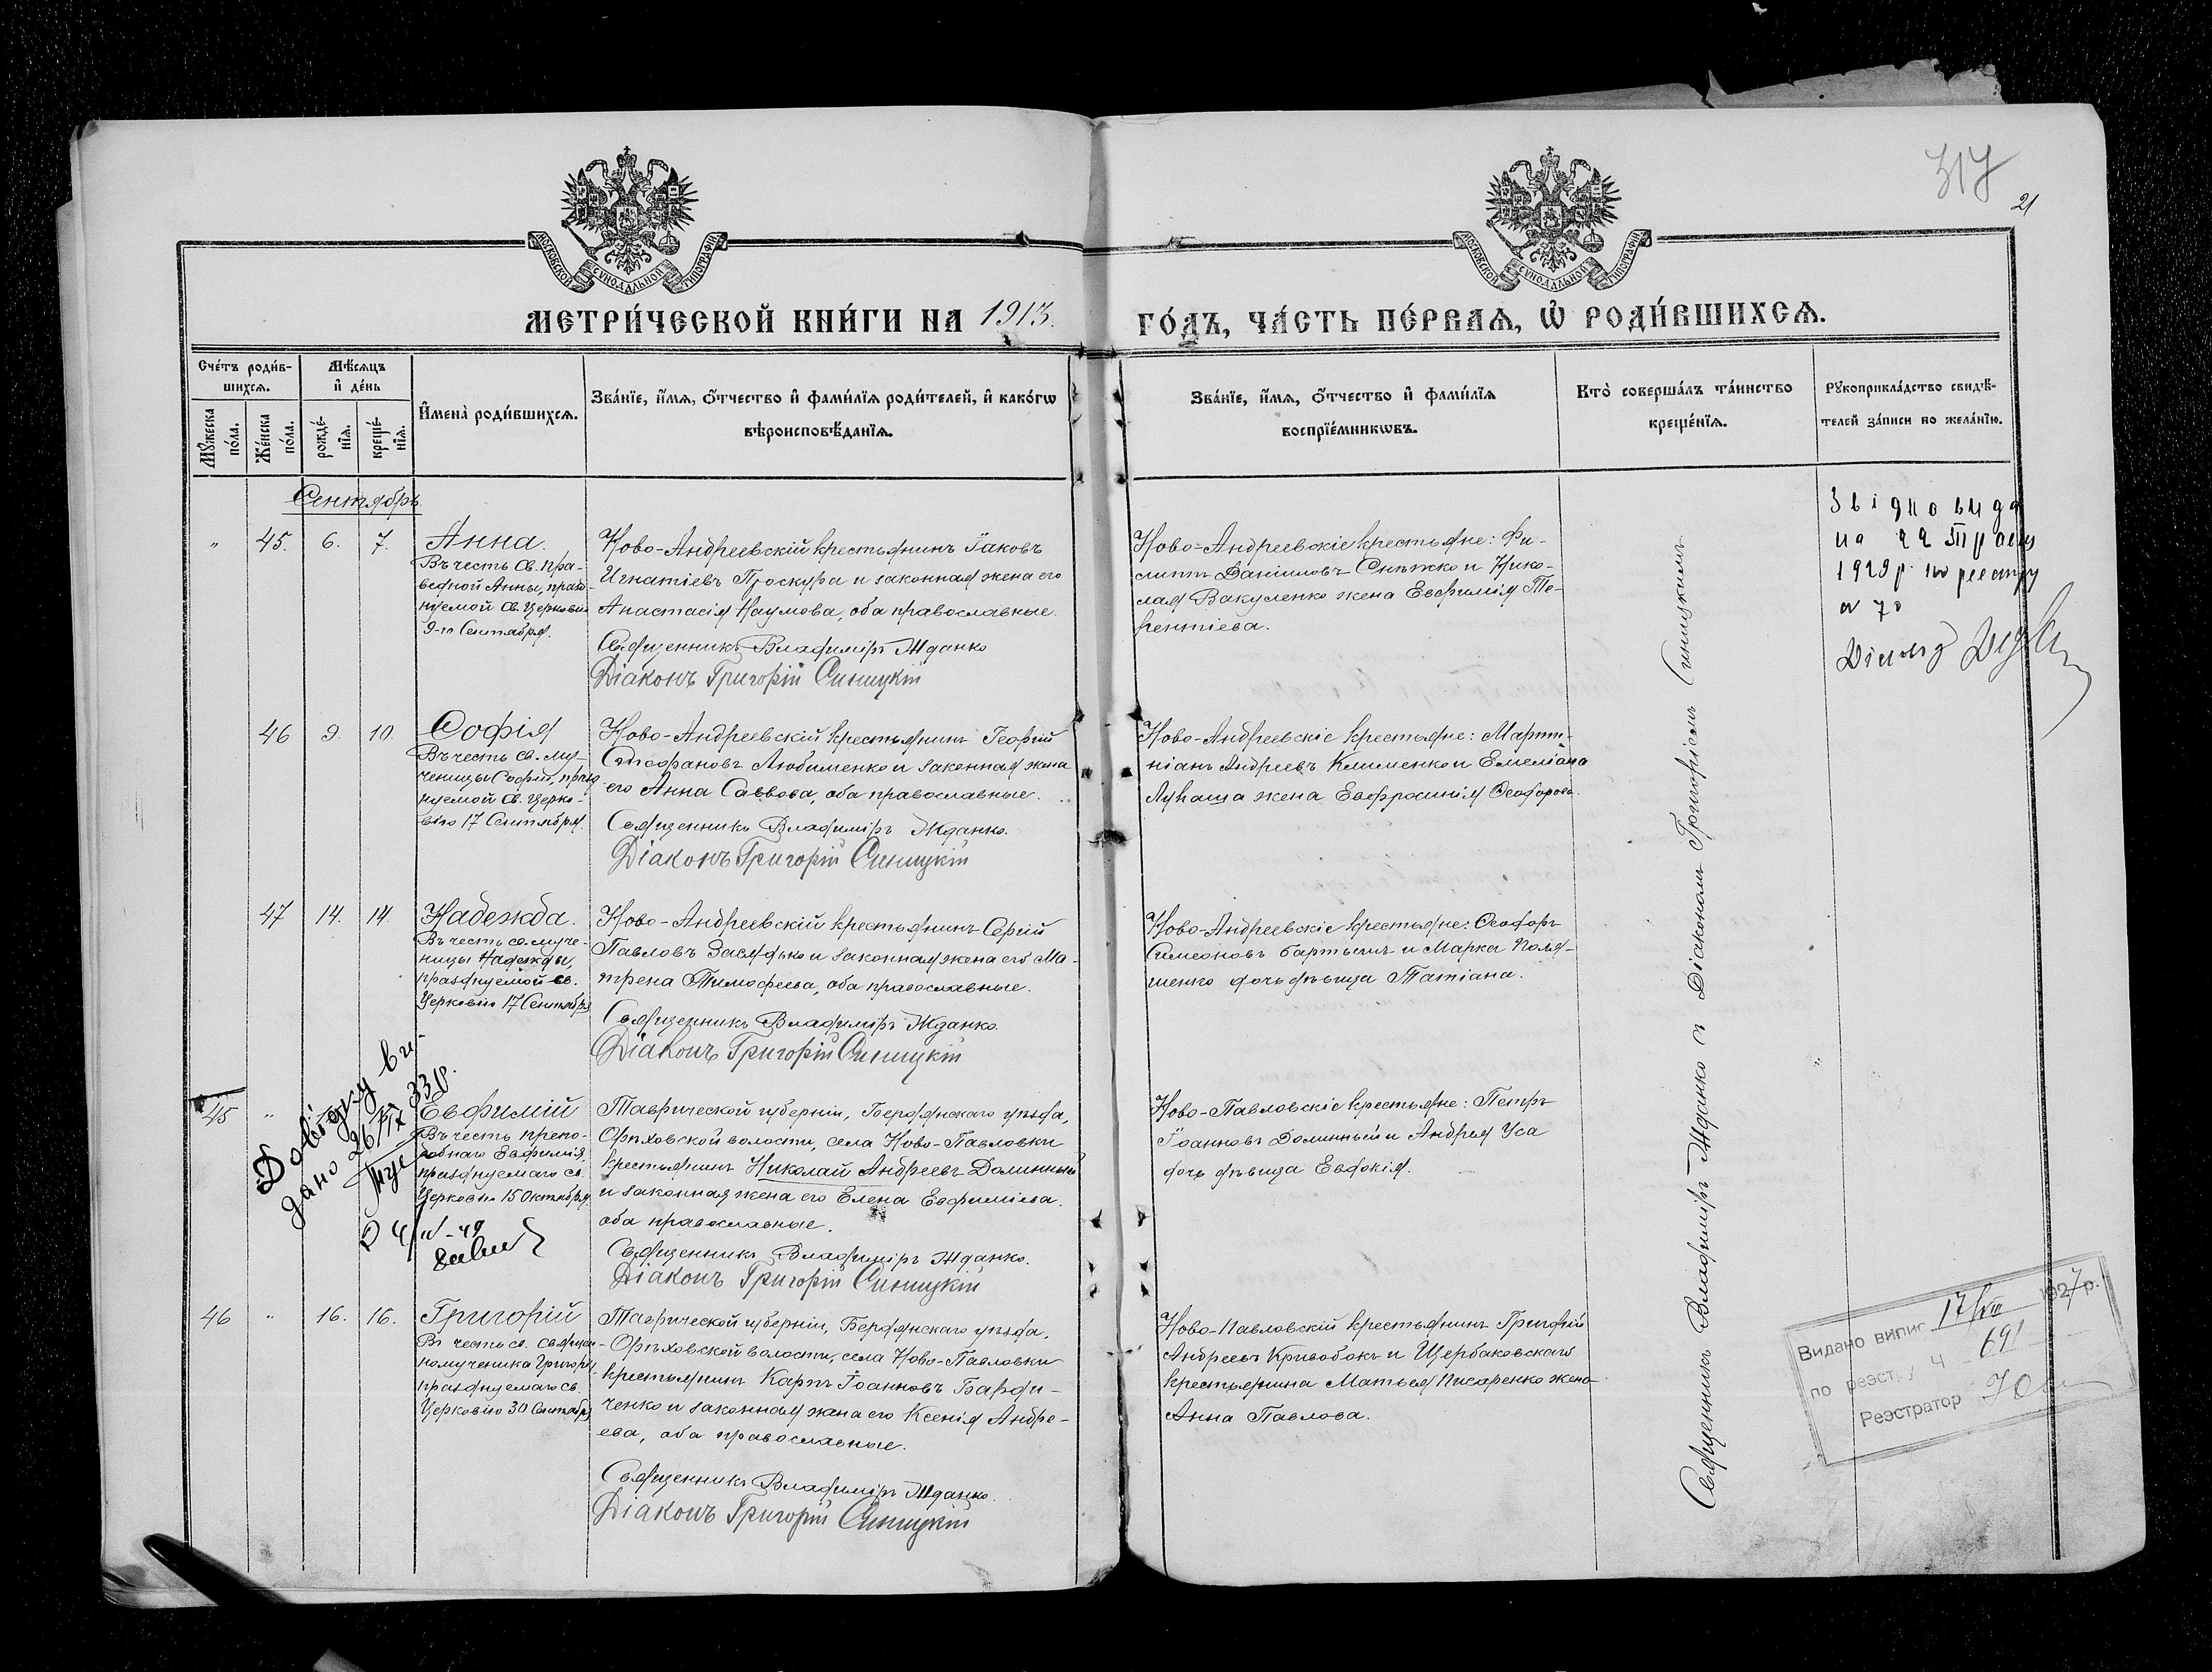 317
21
МОСКОВСКОЙ СѴНОДАЛЬНОЙ ТИПОГРАФІИ
МОСКОВСКОЙ СѴНОДАЛЬНОЙ ТИПОГРАФІИ
МЕТРИ́ЧЕСКОЙ КНИ́ГИ НА 1913.
ГО́ДЪ, ЧА́СТЬ ПЕ́РВАѦ, Ѽ РОДИ́ВШИХСѦ.
Сче́тъ роди́в-
шихсѧ.
Мꙋ́жеска
по́ла.
Же́нска
по́ла.
Мѣ́сѧцъ
и҆ де́нь
рожде́-
нїѧ.
креще́-
нїѧ.
И҆мена̀ роди́вшихсѧ.
Зва́нїе, и҆́мѧ, ѻ҆́тчество и҆ фами́лїѧ роди́телей, и҆ како́гѡ
вѣроисповѣ́данїѧ.
Зва́нїе, и҆́мѧ, ѻ҆́тчество и҆ фами́лїѧ
воспрїе́мникѡвъ.
Кто̀ соверша́лъ та́инство
креще́нїѧ.
Рꙋкоприкла́дство свидѣ́-
телей за́писи по жела́нїю.
Сентябрь
" 45. 6. 7.
Анна.
Въ честь Св. Пра-
ведной Анны, празд-
нуемой Св. Церковію
9-го Сентября.
Ново-Андреевскій крестьянинъ Іаковъ
Игнатіевъ Проскура и законная жена его
Анастасія Наумова, оба православные.
Священникъ Владиміръ Жданко
Діаконъ Григорій Синицкій
Ново-Андреевскіе крестьяне: Фи-
липпъ Даніиловъ Снѣжко и Нико-
лая Вакуленко жена Евфимія Те-
рентіева.
1929 р. по реестру
№ 70
46 9. 10.
Софія
Въ честь Св. Му-
ченицы Софіи, празд
нуемой Св. Церко-
вію 17 Сентября.
Ново-Андреевскій крестьянинъ Георгій
Стефановъ Любименко и законная жена
его Анна Саввова, оба православные.
Священникъ Владиміръ Жданко.
Діаконъ Григорій Синицкій
Ново-Андреевскіе крестьяне: Марти-
ніанъ Андреевъ Клименко и Емеліана
Лукаша жена Евфросинія Ѳеодорова.
47 14. 14.
Надежда.
Въ честь св. муче-
ницы Надежды,
празднуемой св.
Церковію 17 Сентября
Ново-Андреевскій крестьянинъ Сергій
Павловъ Засядько и законная жена его Ма-
трена Тимофеева, оба православные.
Священникъ Владиміръ Жданко.
Діаконъ Григорій Синицкій
Ново-Андреевскіе крестьяне: Ѳеодоръ
Симеоновъ и Марка Поля-
шенко дочь дѣвица Татіана.
45 "
Евфимій
Въ честь препо-
добнаго Евфимія,
празднуемаго св.
Церковью 15 Октября
Таврической губерніи, Бердянскаго уѣзда,
Орѣховской волости, села Ново-Павловки
крестьянинъ Николай Андреевъ Долинный
и законная жена его Елена Евфиміева.
оба православные.
Священникъ Владиміръ Жданко.
Діаконъ Григорій Синицкій
Ново-Павловскіе крестьяне: Петръ
Іоанновъ Долинный и Андрея Уса
дочь дѣвица Евдокія.
Довідку ви-
дано 26/IX 33 р.
46 " 16. 16.
Григорій
Въ честь св. священ-
номученика Григорія
празднуемаго св.
Церковію 30 Сентября
Таврической губерніи, Бердянскаго уѣзда,
Орѣховской волости, села Ново-Павловки
крестьянинъ Карпъ Іоанновъ Бардри-
ченко и законная жена его Ксенія Андре-
ева, оба православные.
Священникъ Владиміръ Жданко.
Діаконъ Григорій Синицкій
Ново-Павловскій крестьянинъ Григорій
Андреевъ Кривобокъ и Щербаковскаго
крестьянина Матвея Писаренко жена
Анна Павлова.
Священникъ Владиміръ Жданко съ Діакономъ Григоріемъ Синицкимъ
Видано випис 17/VIII 1927р.
по реэстру Ч 691
Реэстратор